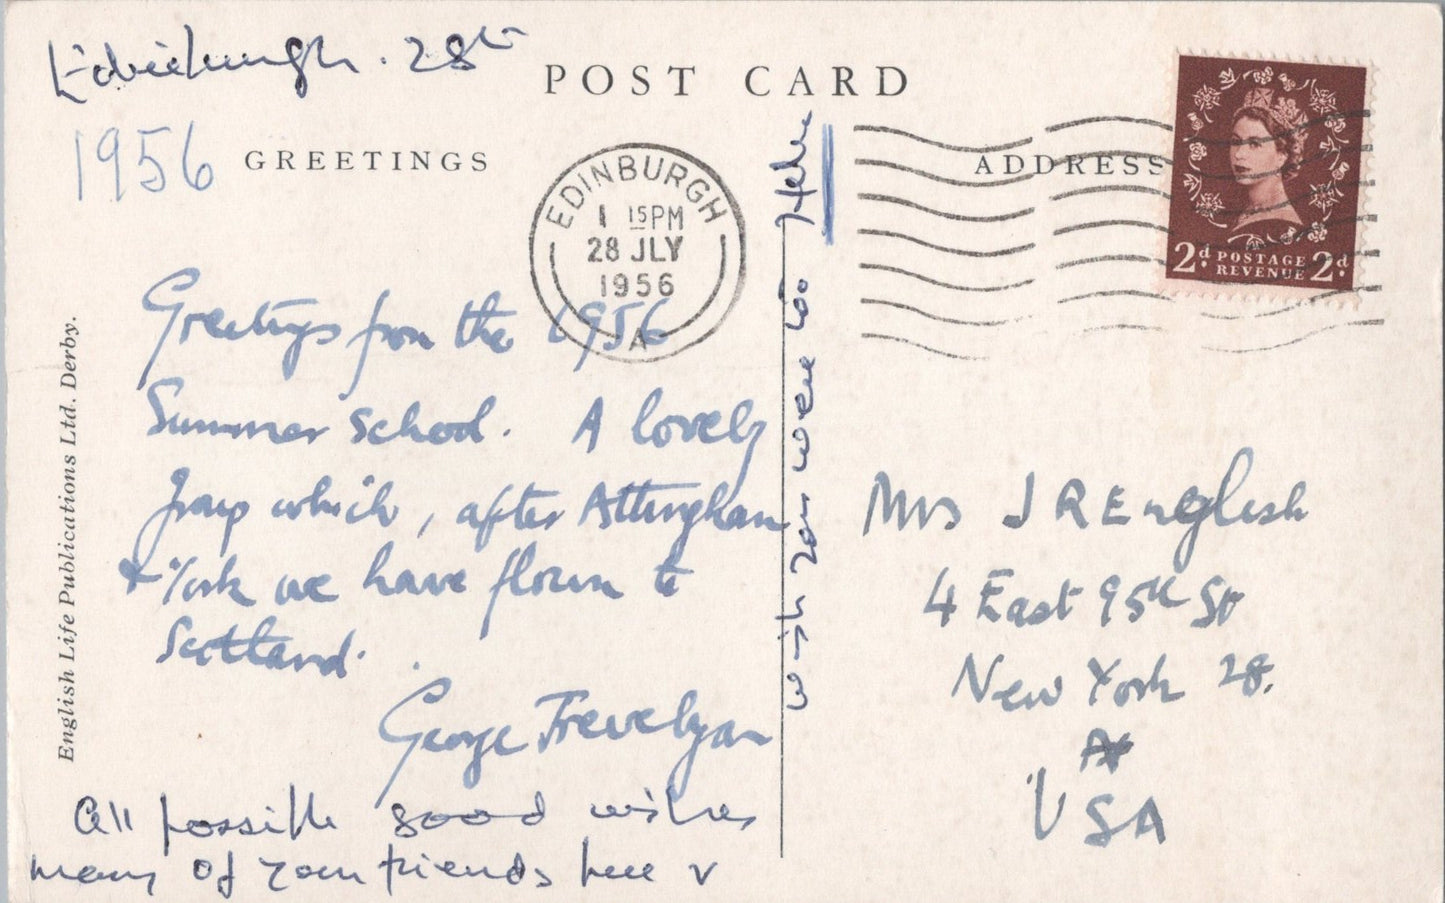 Edinburgh. 28th
1956
POST CARD
GREETINGS
ADDRESS
EDINBURGH
1 15PM
28 JLY
1956
A
2d POSTAGE REVENUE 2d
Greetings from the 1956
Summer School. A lovely
group which, after Attingham
& York we have flown to
Scotland.
George Trevelyan
All possible good wishes
many of your friends here &
wish you were too
Helen
Mrs J R English
4 East 95th St
New York 28.
USA
English Life Publications Ltd. Derby.